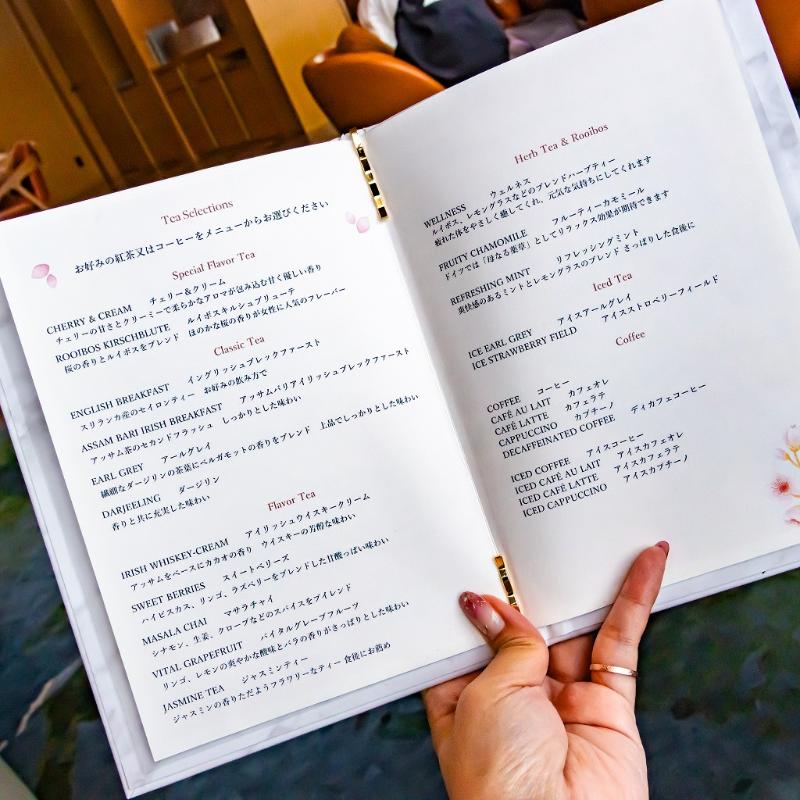 Tea Selections
お好みの紅茶又はコーヒーをメニューからお選びください
Special Flavor Tea
CHERRY & CREAM チェリー&クリーム
チェリーの甘さとクリーミーで柔らかなアロマが包み込む甘く優しい香り
ROOIBOS KIRSCHBLUTE ルイボスキルシュブリューテ
桜の香りとルイボスをブレンド ほのかな桜の香りが女性に人気のフレーバー
Classic Tea
ENGLISH BREAKFAST イングリッシュブレックファースト
スリランカ産のセイロンティー お好みの飲み方で
ASSAM BARI IRISH BREAKFAST アッサムバリアイリッシュブレックファースト
アッサム茶のセカンドフラッシュ しっかりとした味わい
EARL GREY アールグレイ
繊細なダージリンの茶葉にベルガモットの香りをブレンド 上品でしっかりとした味わい
DARJEELING ダージリン
香りと共に充実した味わい
Flavor Tea
IRISH WHISKEY-CREAM アイリッシュウイスキークリーム
アッサムをベースにカカオの香り ウイスキーの芳醇な味わい
SWEET BERRIES スイートベリーズ
ハイビスカス、リンゴ、ラズベリーをブレンドした甘酸っぱい味わい
MASALA CHAI マサラチャイ
シナモン、生姜、クローブなどのスパイスをブレンド
VITAL GRAPEFRUIT バイタルグレープフルーツ
リンゴ、レモンの爽やかな酸味とバラの香りがさっぱりとした味わい
JASMINE TEA ジャスミンティー
ジャスミンの香りただようフラワリーなティー 食後にお薦め
Herb Tea & Rooibos
WELLNESS ウェルネス
ルイボス、レモングラスなどのブレンドハーブティー
疲れた体をやさしく癒してくれ、元気な気持ちにしてくれます
FRUITY CHAMOMILE フルーティーカモミール
ドイツでは「母なる薬草」としてリラックス効果が期待できます
REFRESHING MINT リフレッシングミント
爽快感のあるミントとレモングラスのブレンド さっぱりした食後に
Iced Tea
ICE EARL GREY アイスアールグレイ
ICE STRAWBERRY FIELD アイスストロベリーフィールド
Coffee
COFFEE コーヒー
CAFÉ AU LAIT カフェオレ
CAFÉ LATTE カフェラテ
CAPPUCCINO カプチーノ
DECAFFEINATED COFFEE ディカフェコーヒー
ICED COFFEE アイスコーヒー
ICED CAFÉ AU LAIT アイスカフェオレ
ICED CAFÉ LATTE アイスカフェラテ
ICED CAPPUCCINO アイスカプチーノ